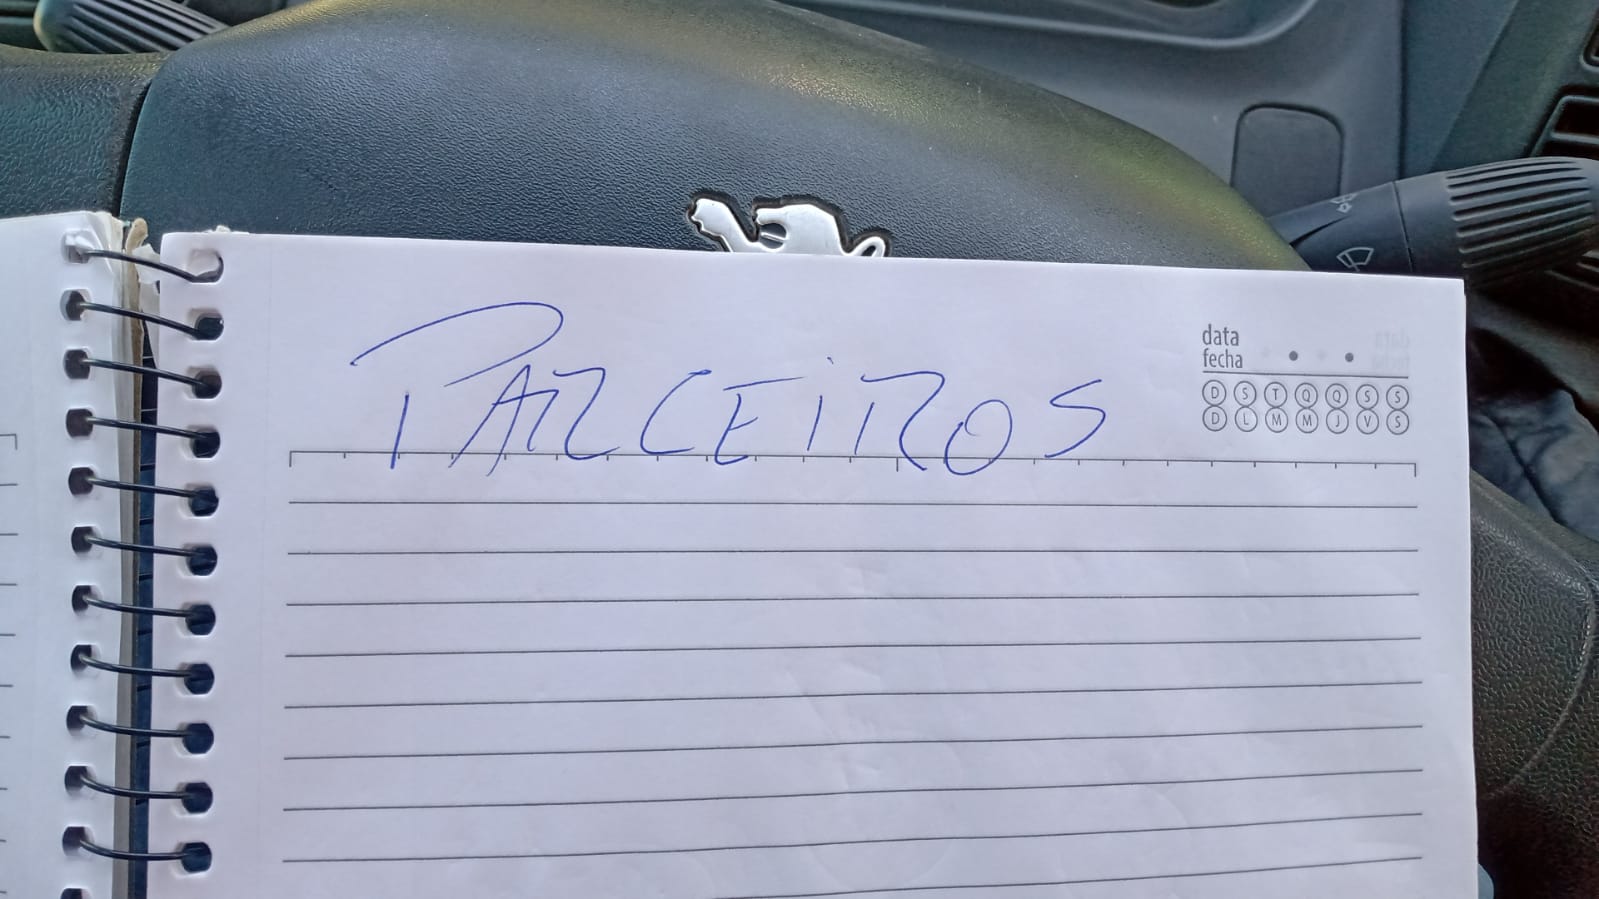 PARCEIROS
data
fecha
D S T Q Q S S
D L M M J V S